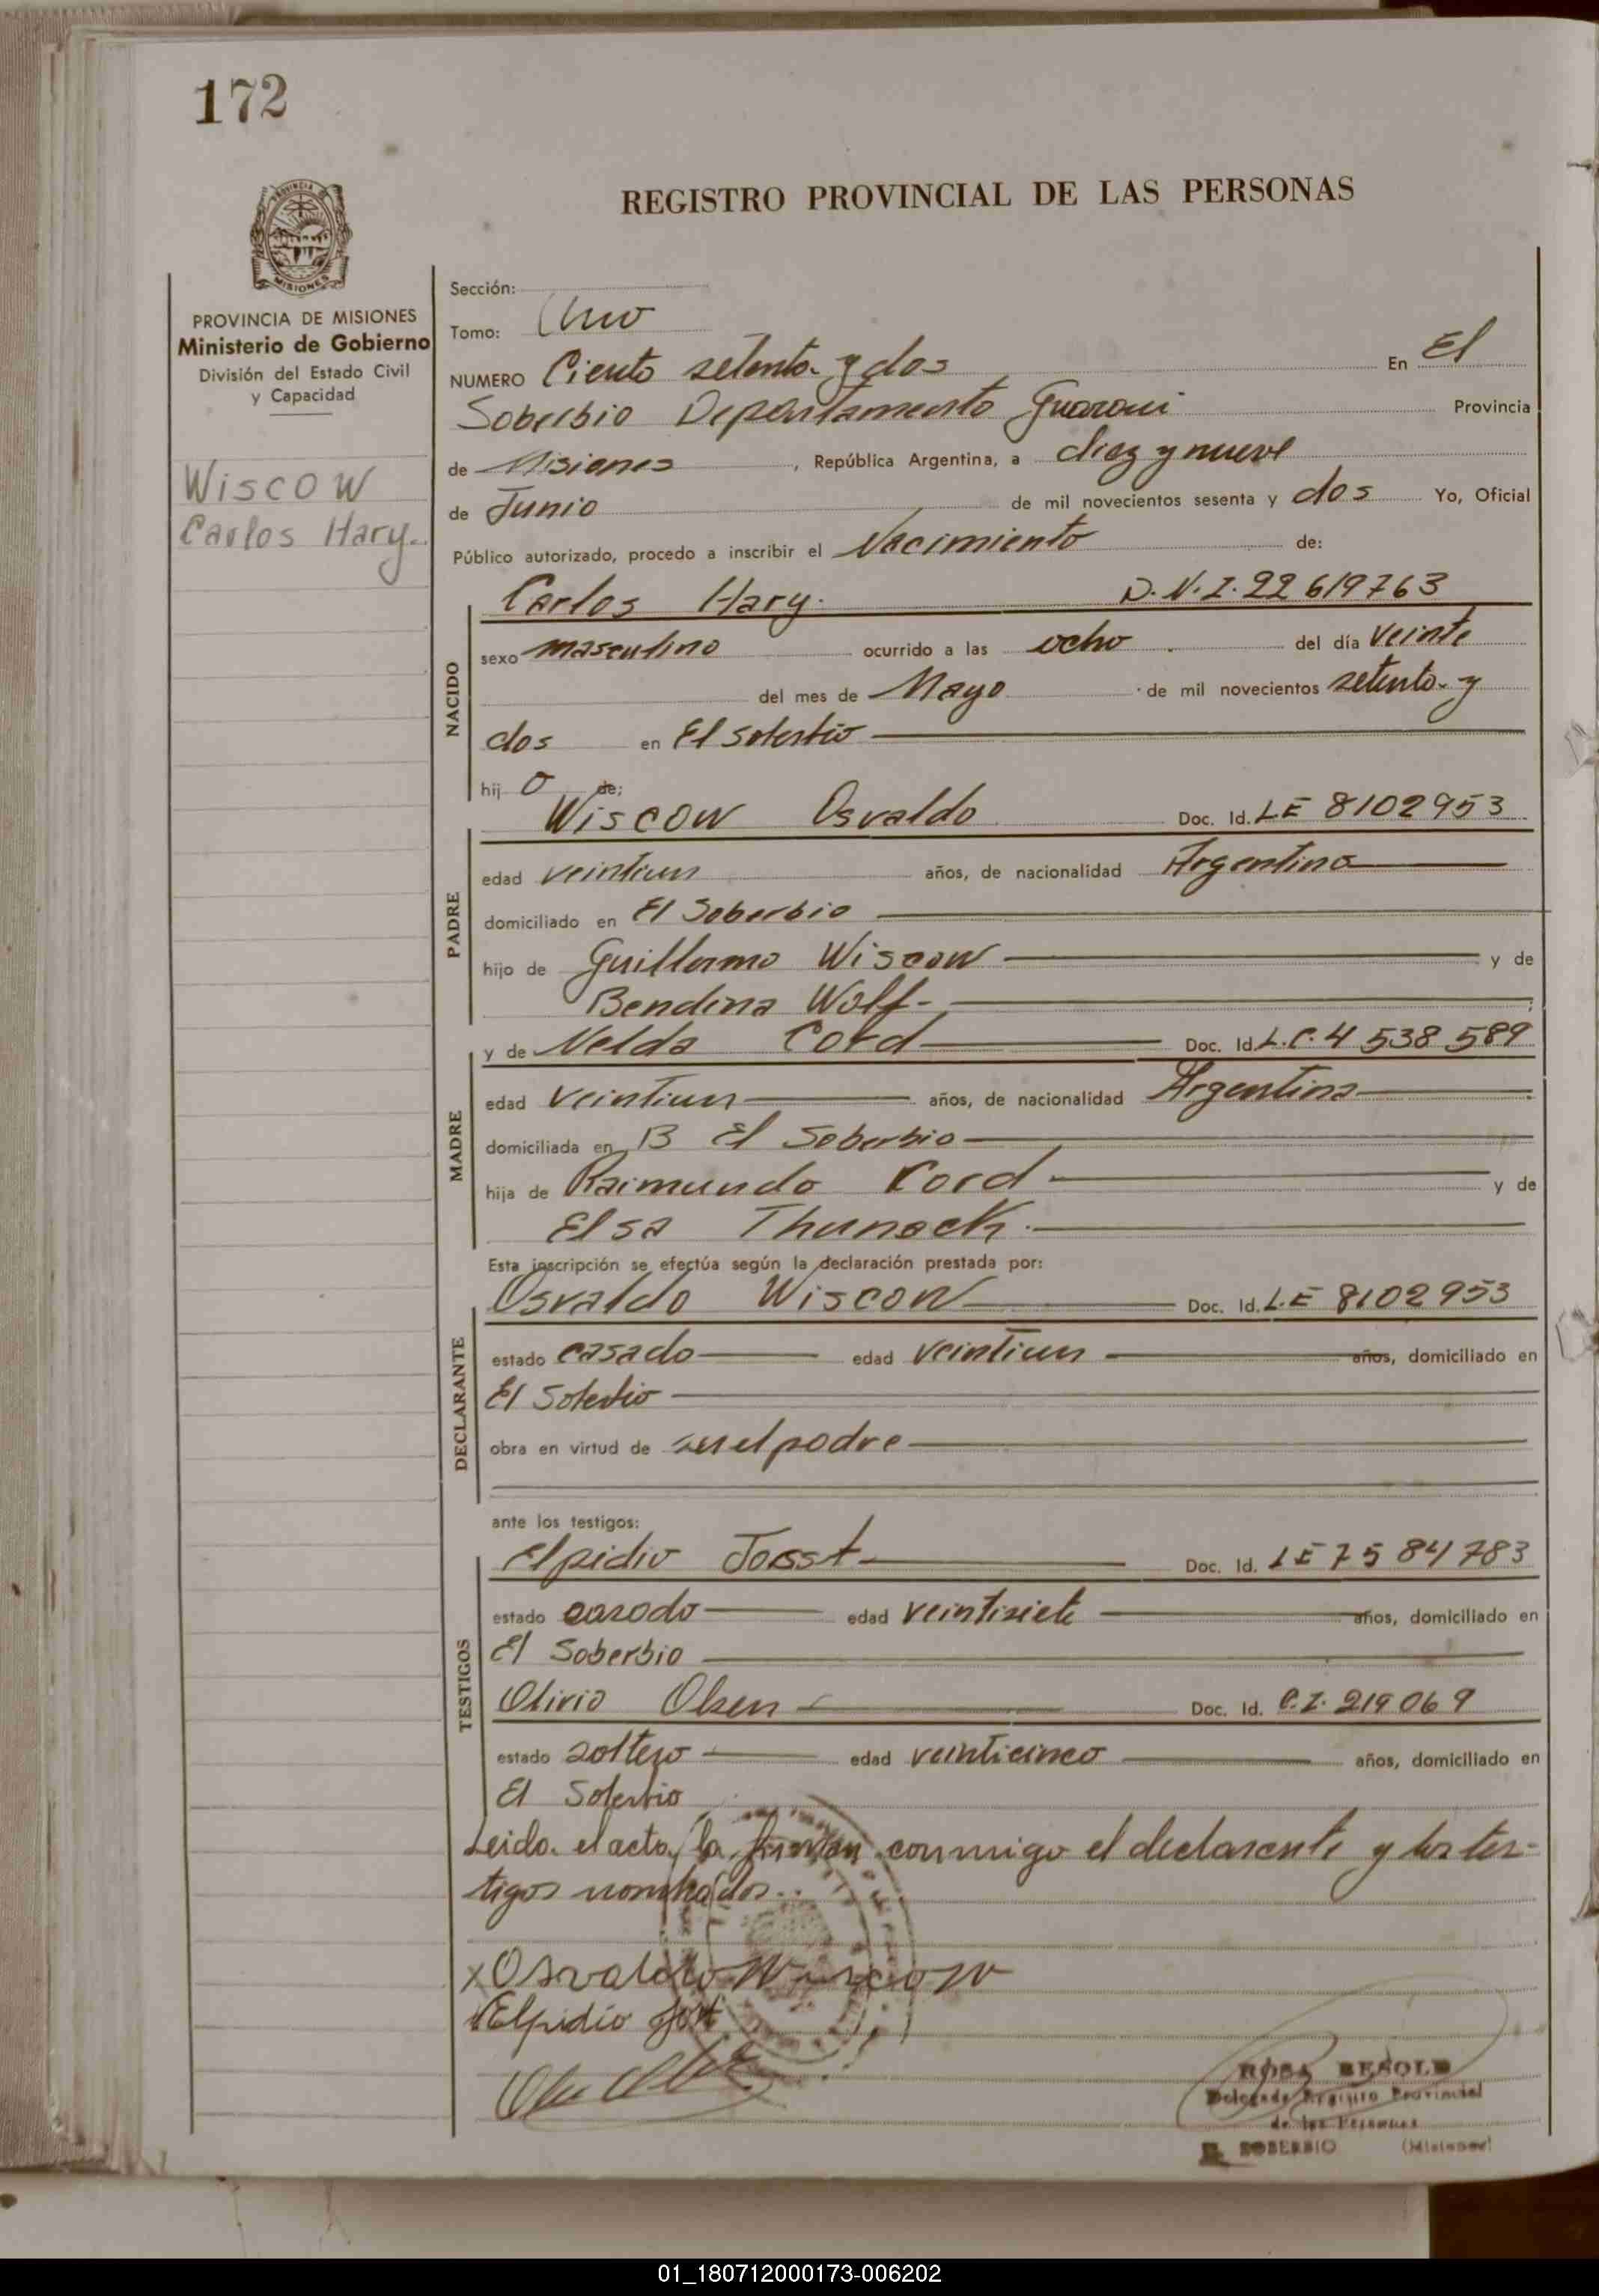 172
REGISTRO PROVINCIAL DE LAS PERSONAS
PROVINCIA DE MISIONES
MISIONES
PROVINCIA DE MISIONES
Ministerio de Gobierno
División del Estado Civil
y Capacidad
Wiscow
Carlos Hary.
Sección:
Tomo: Uno
NUMERO Ciento setenta y dos En El
Soberbio Departamento Guarani Provincia
de Misiones, República Argentina, a diez y nueve
de Junio de mil novecientos sesenta y dos Yo, Oficial
Público autorizado, procedo a inscribir el Nacimiento de:
NACIDO
Carlos Hary. D.N.I. 22 619763
sexo masculino ocurrido a las ocho del día veinte
del mes de Mayo de mil novecientos setenta y
dos en El Soberbio
hij o de;
PADRE
Wiscow Osvaldo Doc. Id. LE 8102953
edad veintiun años, de nacionalidad Argentina
domiciliado en El Soberbio
hijo de Guillermo Wiscow y de
Bendina Wolf-;
MADRE
y de Nelda Cord Doc. Id. L.C. 4 538 589
edad veintiun años, de nacionalidad Argentina
domiciliada en El Soberbio
hija de Raimundo Cord y de
Elsa Thunack.
Esta inscripción se efectúa según la declaración prestada por:
DECLARANTE
Osvaldo Wiscow Doc. Id. L.E 8102953
estado casado edad veintiun años, domiciliado en
El Soberbio
obra en virtud de ser el padre
ante los testigos:
TESTIGOS
Elpidio Josst Doc. Id. LE 75 84 783
estado casado edad veintisiete años, domiciliado en
El Soberbio
Olivio Olsen Doc. Id. C.I. 219 069
estado soltero edad veinticinco años, domiciliado en
El Soberbio
Leida el acta, la firman conmigo el declarante y los tes-
tigos nombrados.
x Osvaldo Wiscow
Elpidio Jost
ROSA BESOLD
Delegada Registro Provincial
de las Personas
EL SOBERBIO (Misiones)
01_180712000173-006202